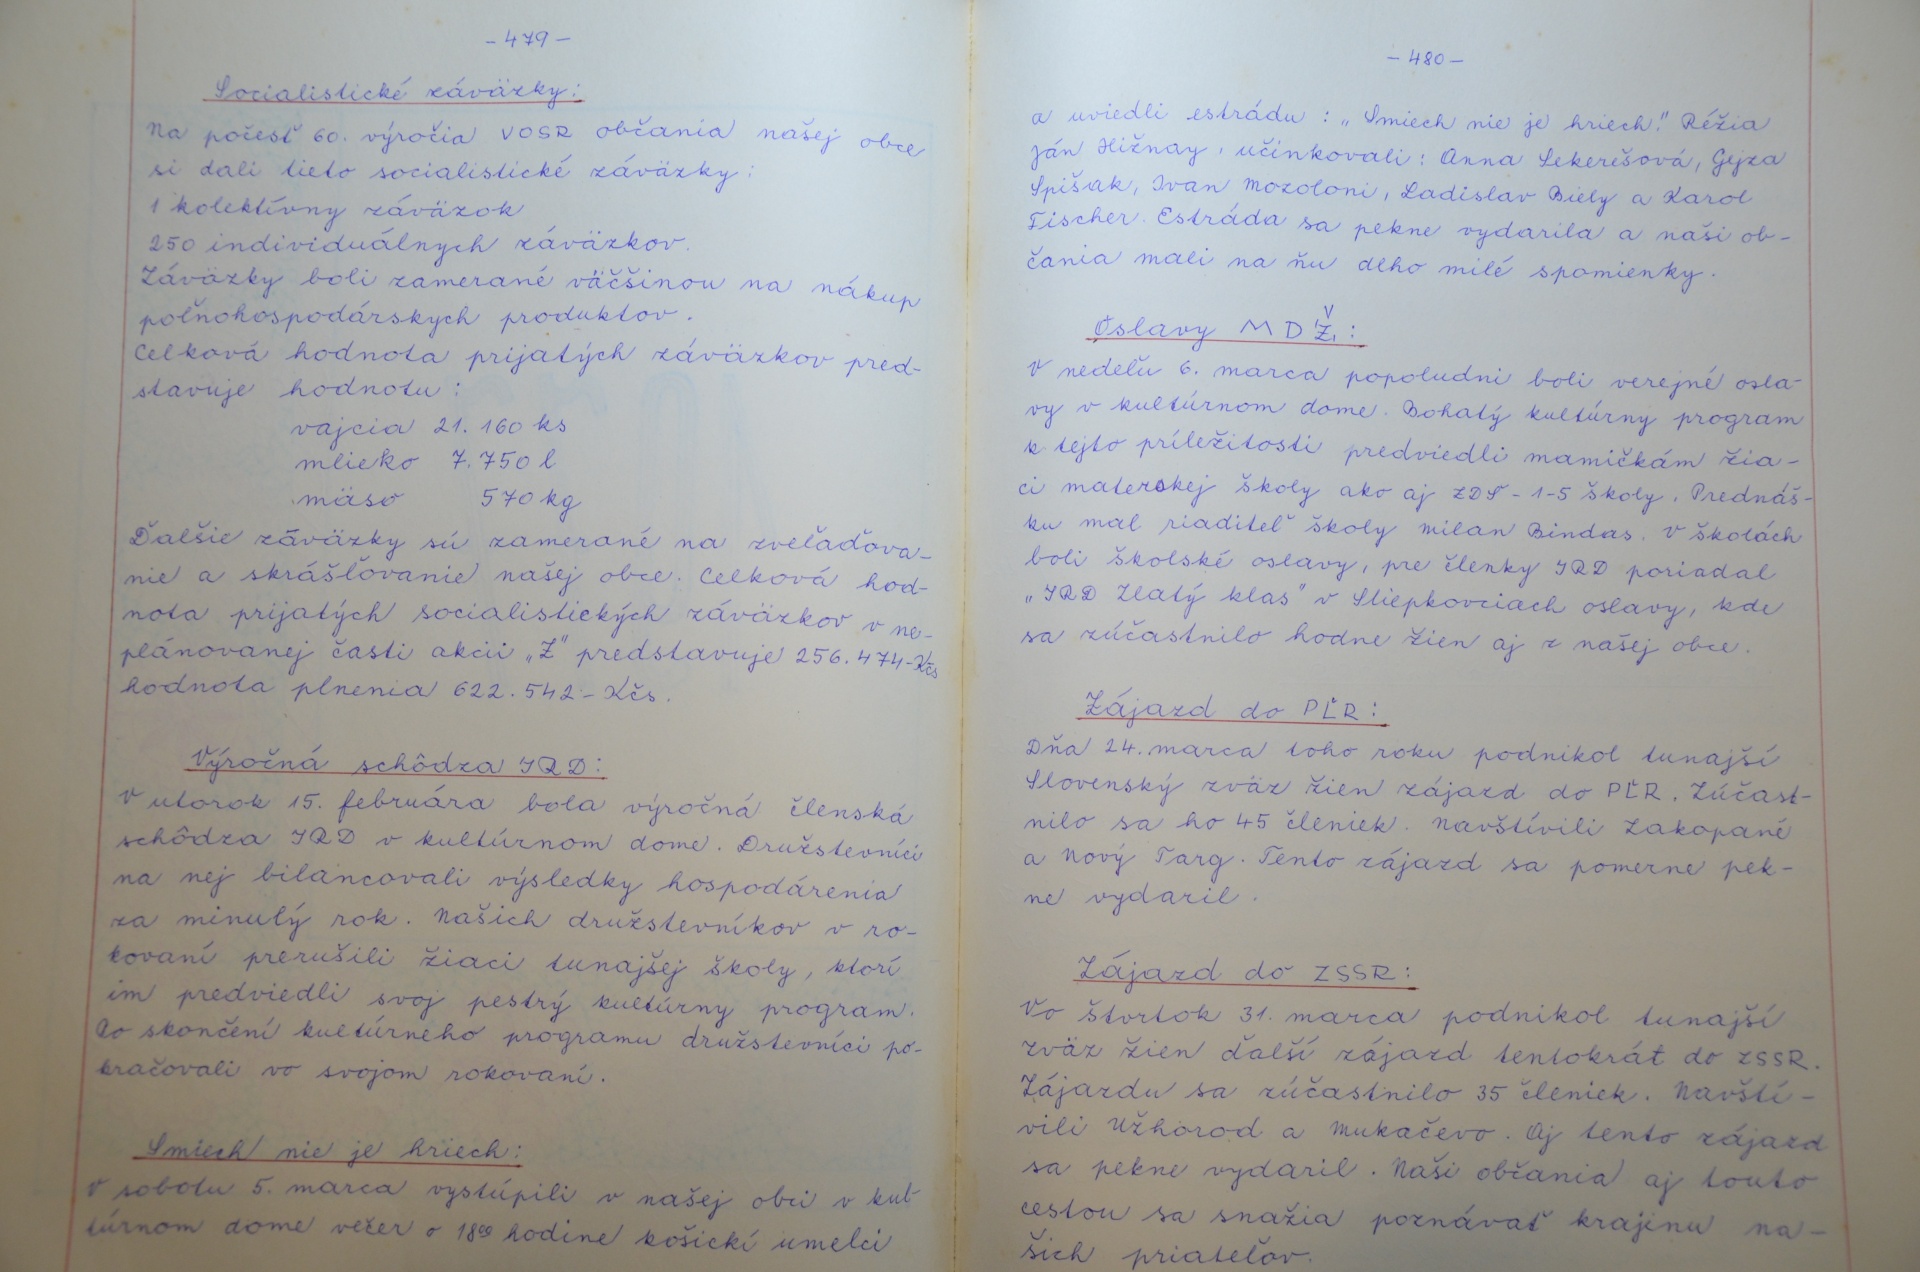 - 479 -
Socialistické záväzky:
Na počesť 60. výročia VOSR občania našej obce
si dali tieto socialistické záväzky:
1 kolektívny záväzok
250 individuálnych záväzkov.
Záväzky boli zamerané väčšinou na nákup
poľnohospodárskych produktov.
Celková hodnota prijatých záväzkov pred-
stavuje hodnotu:
vajcia 21.160 ks
mlieko 7.750 l
mäso 570 kg
Ďalšie záväzky sú zamerané na zveľaďova-
nie a skrášľovanie našej obce. Celková hod-
nota prijatých socialistických záväzkov v ne-
plánovanej časti akcii „Z" predstavuje 256.474-Kčs
hodnota plnenia 622.542- Kčs.
Výročná schôdza JRD:
V utorok 15. februára bola výročná členská
schôdza JRD v kultúrnom dome. Družstevníci
na nej bilancovali výsledky hospodárenia
za minulý rok. Našich družstevníkov v ro-
kovaní prerušili žiaci tunajšej školy, ktorí
im predviedli svoj pestrý kultúrny program.
Po skončení kultúrneho programu družstevníci po-
kračovali vo svojom rokovaní.
Smiech nie je hriech:
V sobotu 5. marca vystúpili v našej obci v kul-
túrnom dome večer o 18⁰⁰ hodine košickí umelci
- 480 -
a uviedli estrádu: „Smiech nie je hriech!" Réžia
Ján Hižnay, učinkovali: Anna Sekerešová, Gejza
Spišak, Ivan Mozoloni, Ladislav Biely a Karol
Fischer. Estráda sa pekne vydarila a naši ob-
čania mali na ňu dlho milé spomienky.
Oslavy MDŽ:
V nedeľu 6. marca popoludni boli verejné osla-
vy v kultúrnom dome. Bohatý kultúrny program
k tejto príležitosti predviedli mamičkám žia-
ci materskej školy ako aj ZDŠ - 1-5 školy. Prednáš-
ku mal riaditeľ školy Milan Bindas. V školách
boli školské oslavy, pre členky JRD poriadal
„JRD Zlatý klas" v Sliepkovciach oslavy, kde
sa zúčastnilo hodne žien aj z našej obce.
Zájazd do PĽR:
Dňa 24. marca toho roku podnikol tunajší
Slovenský zväz žien zájazd do PĽR. Zúčast-
nilo sa ho 45 členiek. Navštívili Zakopané
a Nový Targ. Tento zájazd sa pomerne pek-
ne vydaril.
Zájazd do ZSSR:
Vo štvrtok 31. marca podnikol tunajší
zväz žien ďalší zájazd tentokrát do ZSSR.
Zájazdu sa zúčastnilo 35 členiek. Navští-
vili Užhorod a Mukačevo. Aj tento zájazd
sa pekne vydaril. Naši občania aj touto
cestou sa snažia poznávať krajinu na-
šich priateľov.